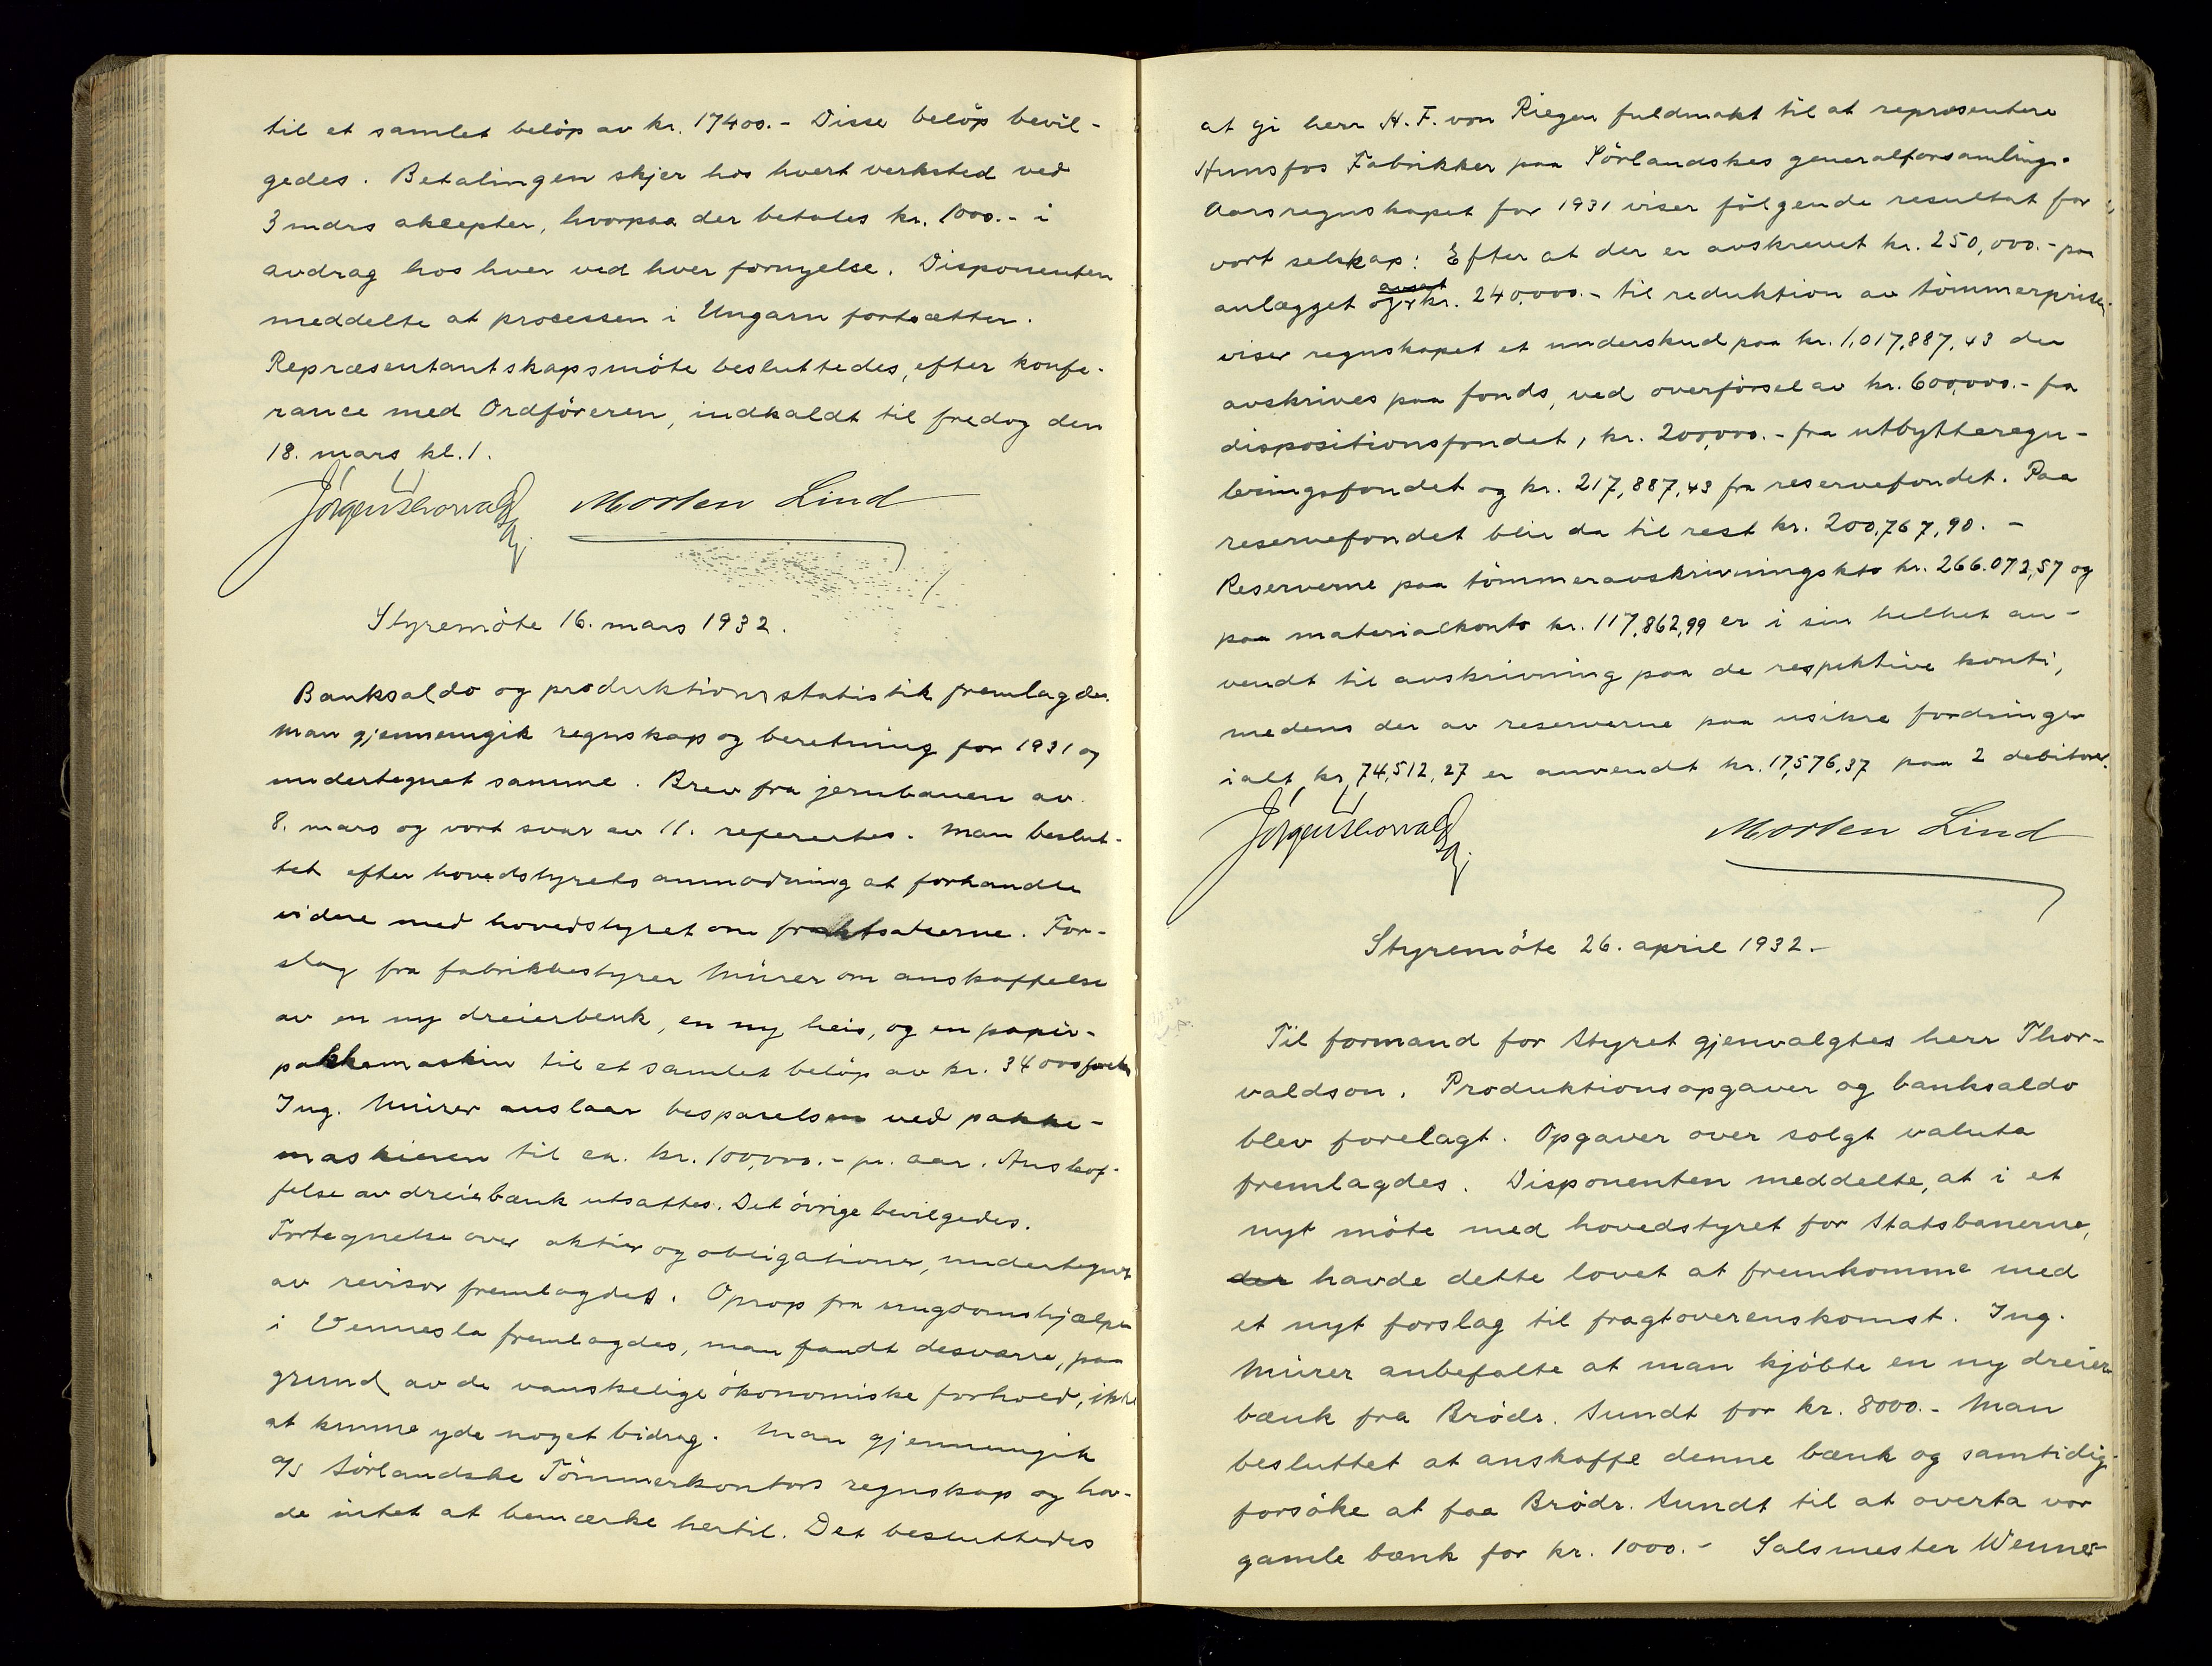 til et samlet beløp av kr. 17400.- Disse beløp bevil-
gedes. Betalingen skjer hos hvert verksted ved
3 mdrs aksepter, hvorpaa der betales kr. 1000.- i
avdrag hos hver ved hver fornyelse. Disponenten
meddelte at processen i Ungarn fortsætter.
Repræsentantskapsmöte besluttedes, efter konfe-
rance med Ordföreren, indkaldt til fredag den
18. mars kl. 1.
Morten Lind
Styremöte 16. mars 1932.
Banksaldo og produktionsstatistik fremlagdes.
Man gjennemgik regnskap og beretning for 1931 og
undertegnet samme. Brev fra jernbanen av
8. mars og vort svar av 11. refereertes. Man beslut-
tet efter hovedstyrets anmodning at forhandle
videre med hovedstyret om fraktsatserne. For-
slag fra fabrikbestyrer Mürer om anskaffelse
av en ny dreierbenk, en ny heis, og en papir-
pakkemaskin til et samlet beløp av kr. 34000
Ing. Mürer anslaar besparelsen ved pakke-
maskinen til ca. kr. 100,000.- pr. aar. Anskaf-
felse av dreiebænk utsattes. Det övrige bevilgedes.
Fortegnelse over aktier og obligationer, undertegnet
av revisor fremlagdes. Oprop fra ungdomshjælpen
i Vennesla fremlagdes, man fandt desværre, paa
grund av de vanskelige ökonomiske forhold, ikke
at kunne yde noget bidrag. Man gjennemgik
A/S Sörlandske Tömmerkontors regnskap og hav-
de intet at bemærke hertil. Det besluttedes
at gi herr H. F. von Riegen fuldmakt til at repræsentere
Hunsfos Fabrikker paa Sörlandskes generalforsamling.
Aarsregnskapet for 1931 viser fölgende resultat for
vort selskap: Efter at der er avskrevet kr. 250,000.- paa
anlægget og avsat kr. 240,000.- til reduktion av tömmerpriser
viser regnskapet et underskud paa kr. 1,017,887,43 der
avskrives paa fonds, ved overförsel av kr. 600,000.- fra
dispositionsfondet, kr. 200,000.- fra utbytteregu-
leringsfondet og kr. 217,887,43 fra reservefondet. Paa
reservefondet blir da til rest kr. 200,767,90. -
Reserverne paa tömmeravskrivningskto kr. 266.072,57 og
paa materialkonto kr. 117,862,99 er i sin helhet an-
vendt til avskrivning paa de respektive konti,
medens der av reserverne paa usikre fordringer
ialt kr. 74,512,27 er anvendt kr. 17,576,37 paa 2 debitorer.
Morten Lind
Styremöte 26. april 1932.-
Til formand for Styret gjenvalgtes herr Thor-
valdson. Produktionsopgaver og banksaldo
blev forelagt. Opgaver over solgt valuta
fremlagdes. Disponenten meddelte, at i et
nyt möte med hovedstyret for Statsbanerne,
der havde dette lovet at fremkomme med
et nyt forslag til fragtoverenskomst. Ing.
Mürer anbefalte at man kjöbte en ny dreier
bænk fra Brödr. Sundt for kr. 8000.- Man
besluttet at anskaffe denne bænk og samtidig
forsöke at faa Brödr. Sundt til at overta vor
gamle bænk for kr. 1000.- Salsmester Wenner-